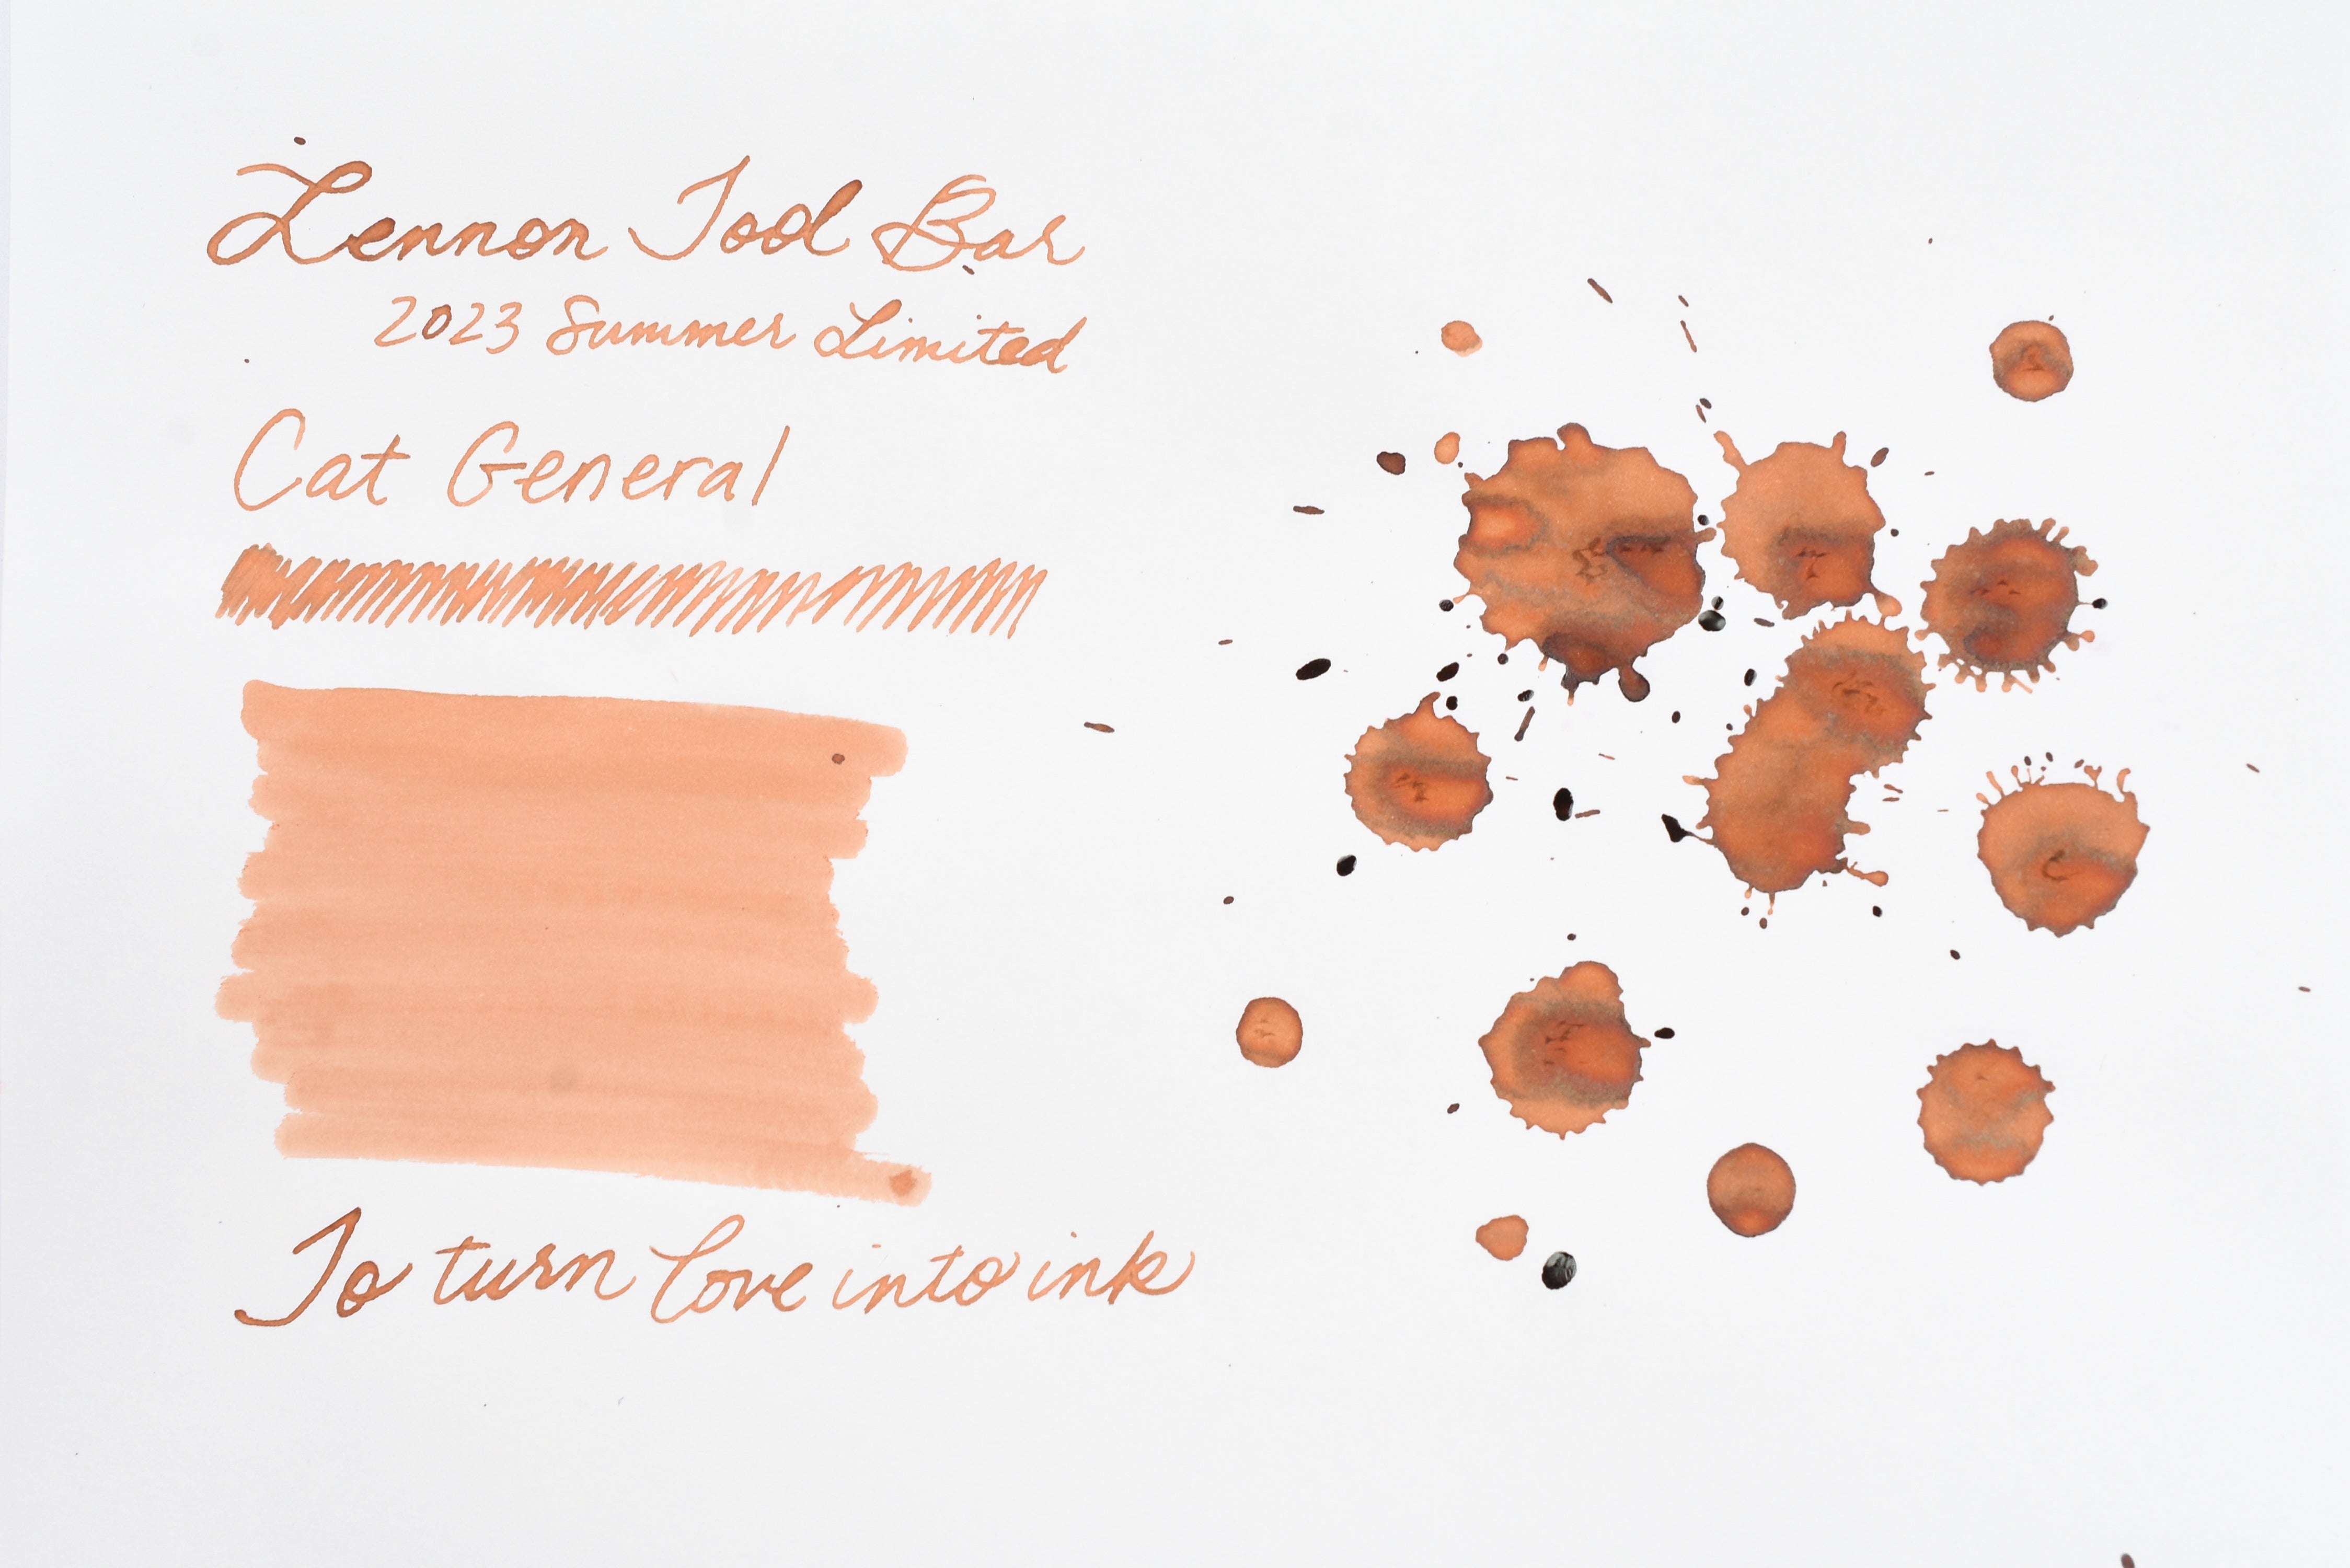 Lennon Tool Bar
2023 Summer Limited
Cat General
To turn love into ink